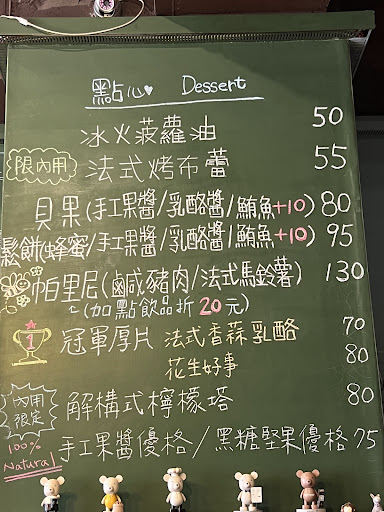 點心 Dessert
冰火菠蘿油 50
限內用 法式烤布蕾 55
貝果(手工果醬/乳酪醬/鮪魚+10) 80
鬆餅(蜂蜜/手工果醬/乳酪醬/鮪魚+10) 95
帕里尼(鹹豬肉/法式馬鈴薯) 130
(加點飲品折20元)
1 冠軍厚片 法式香蒜乳酪 70
花生好事 80
內用限定 解構式檸檬塔 80
100% Natural 手工果醬優格/黑糖堅果優格 75